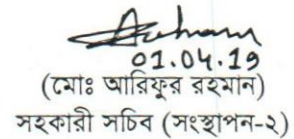 01.04.19
(মোঃ আরিফুর রহমান)
সহকারী সচিব (সংস্থাপন-২)